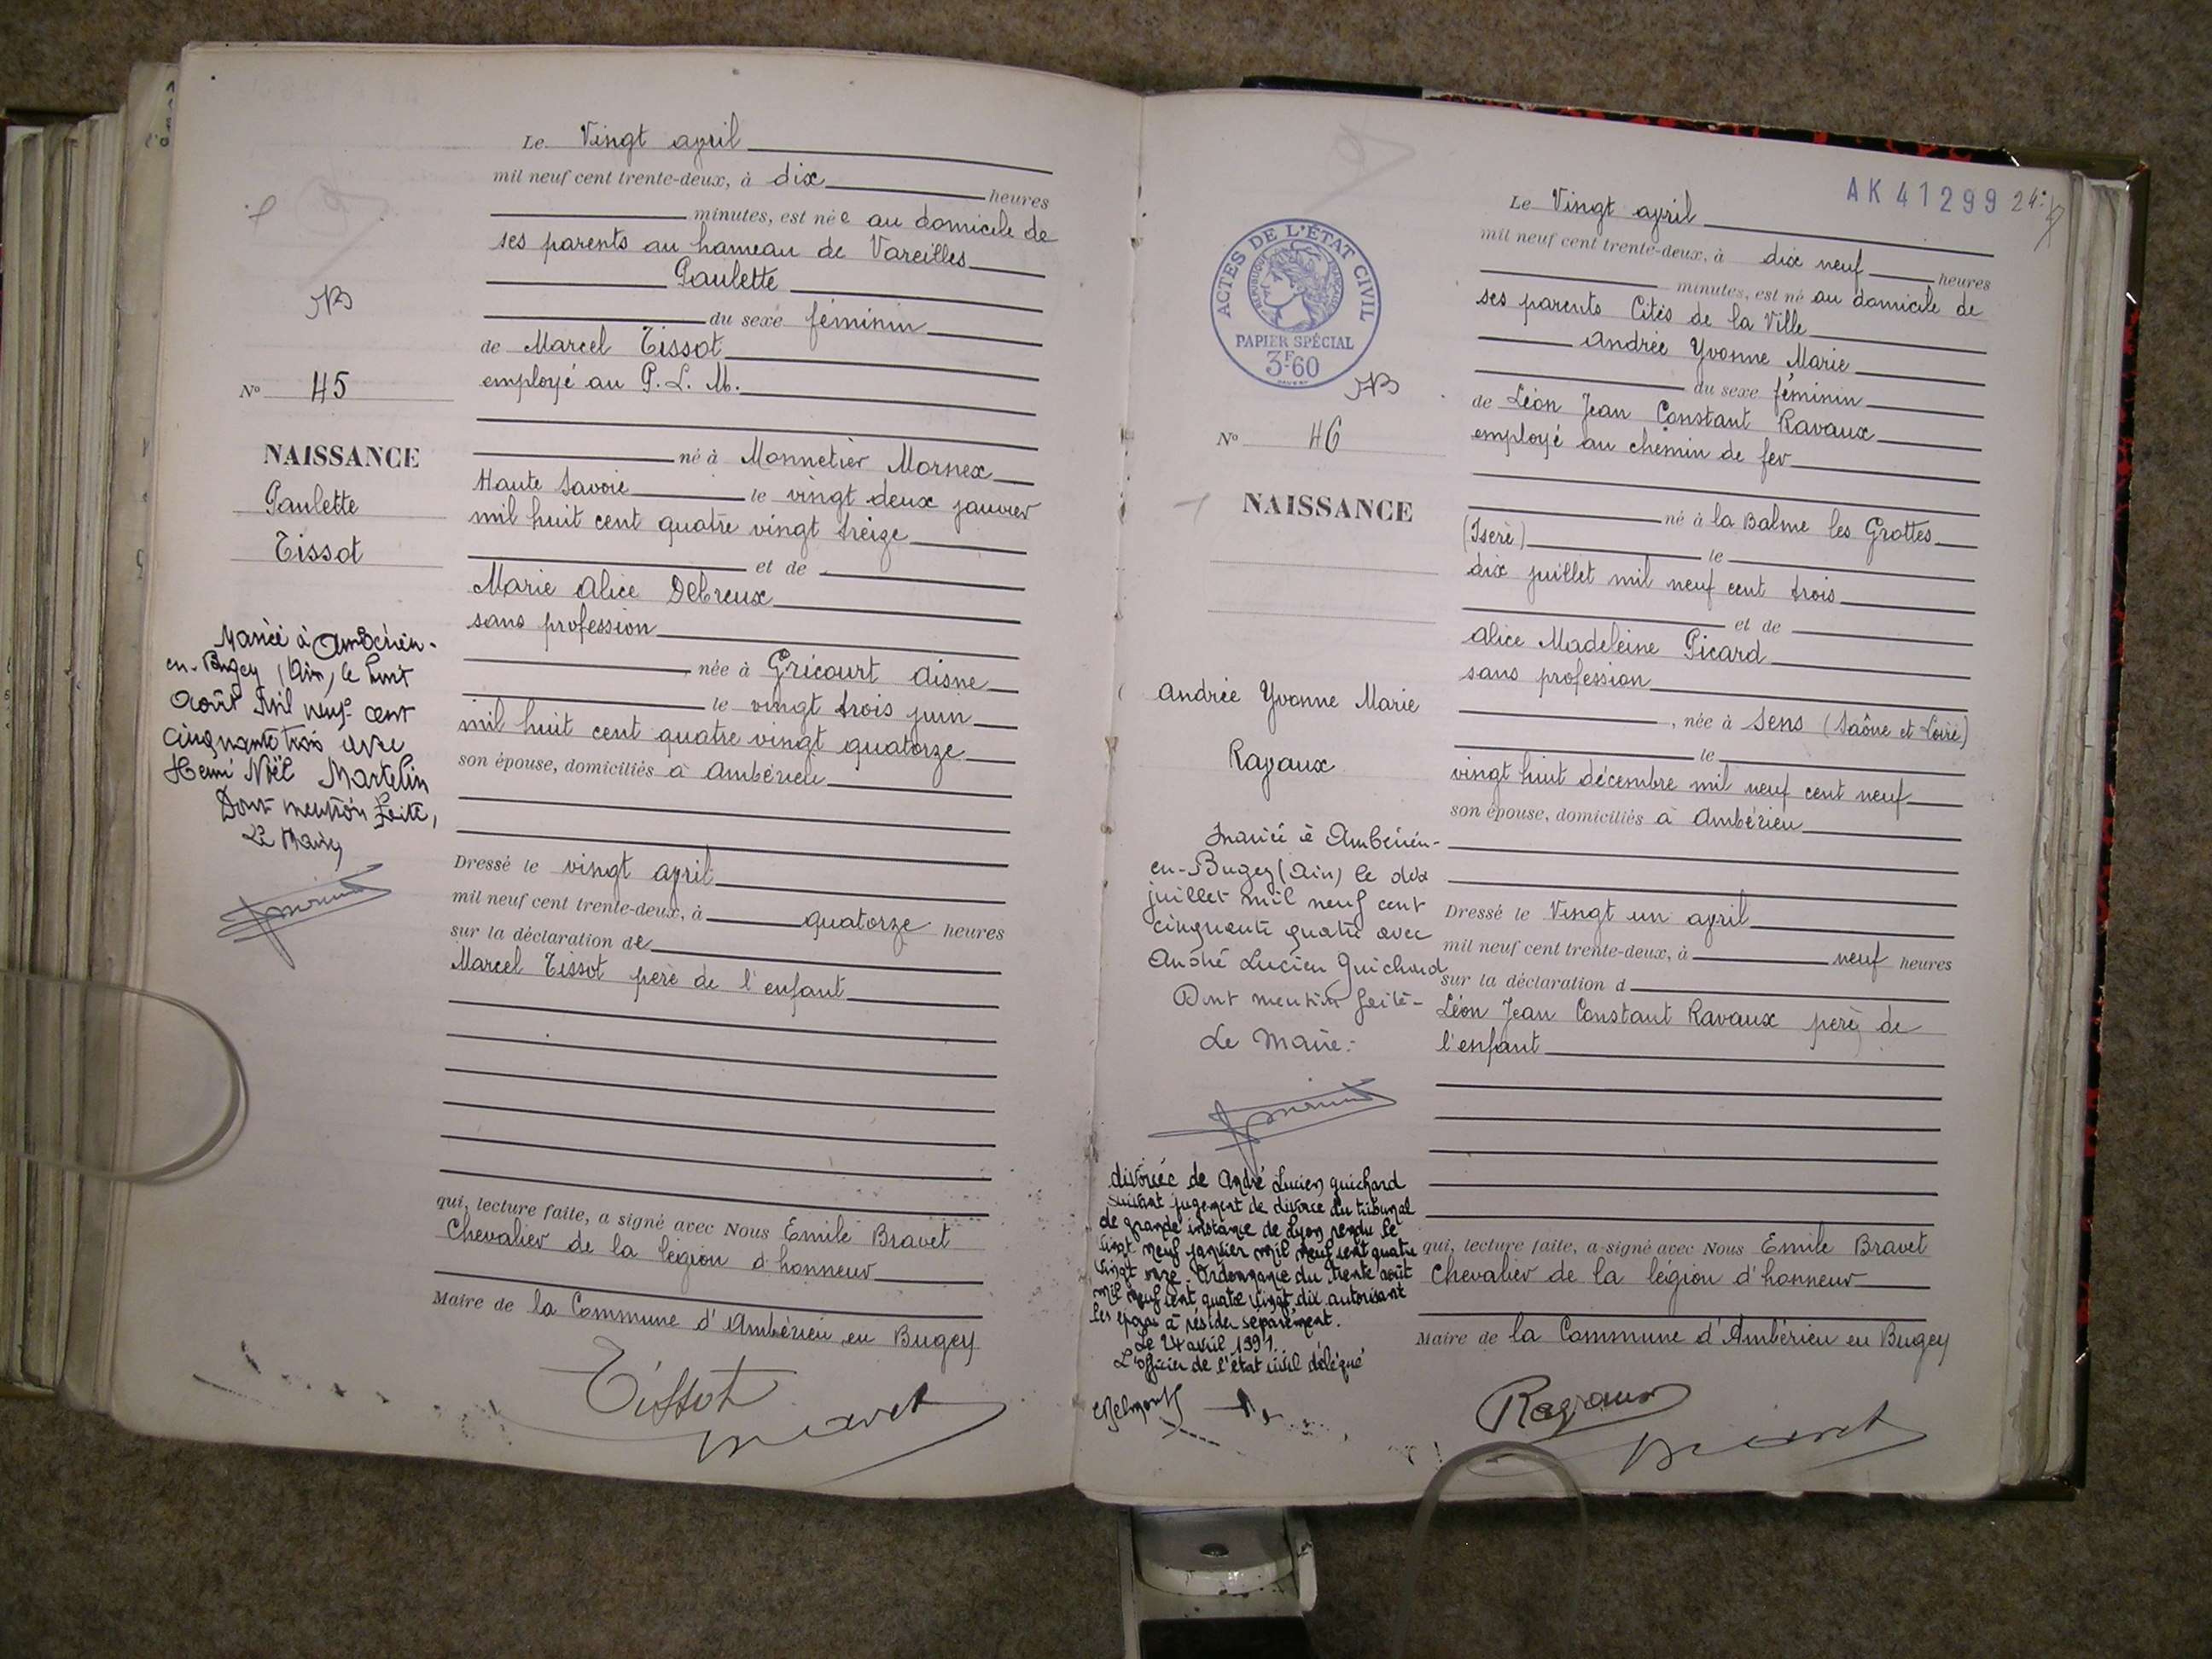 Le Vingt avril
mil neuf cent trente-deux, à dix heures
minutes, est née au domicile de
ses parents au hameau de Vareilles
Paulette
du sexe féminin
de Marcel Tissot
employé au P. L. M.
né à Monnetier Mornex
Haute Savoie le vingt deux janvier
mil huit cent quatre vingt treize
et de
Marie Alice Debreux
sans profession
née à Gricourt Aisne
le vingt trois juin
mil huit cent quatre vingt quatorze
son épouse, domiciliés à Ambérieu
Dressé le vingt avril
mil neuf cent trente-deux, à quatorze heures
sur la déclaration de
Marcel Tissot père de l'enfant
qui, lecture faite, a signé avec Nous Emile Bravet
Chevalier de la légion d'honneur
Maire de la Commune d'Ambérieu en Bugey
Tissot
Bravet
No 45
NAISSANCE
Paulette
Tissot
Mariée à Ambérieu-
en-Bugey (Ain) le huit
Août Mil neuf cent
cinquante trois avec
Henri Noël Martelin
Dont mention faite,
Le Maire,
AK 41299 24
ACTES DE L'ÉTAT CIVIL
RÉPUBLIQUE FRANÇAISE
PAPIER SPÉCIAL
3F60
Le Vingt avril
mil neuf cent trente-deux, à dix neuf heures
minutes, est né au domicile de
ses parents Cités de la Ville
Andrée Yvonne Marie
du sexe féminin
de Léon Jean Constant Ravaux
employé au chemin de fer
né à la Balme les Grottes
(Isère) le
dix juillet mil neuf cent trois
et de
Alice Madeleine Picard
sans profession
, née à Sens (Saône et Loire)
le
vingt huit décembre mil neuf cent neuf
son épouse, domiciliés à Ambérieu
Dressé le Vingt un avril
mil neuf cent trente-deux, à neuf heures
sur la déclaration d
Léon Jean Constant Ravaux père de
l'enfant
qui, lecture faite, a signé avec Nous Emile Bravet
Chevalier de la légion d'honneur
Maire de la Commune d'Ambérieu en Bugey
Ravaux
Bravet
No 46
NAISSANCE
Andrée Yvonne Marie
Ravaux
Mariée à Ambérieu-
en-Bugey (Ain) le dix
juillet mil neuf cent
cinquante quatre avec
André Lucien Guichard
Dont mention faite-
Le Maire:
divorcée de André Lucien Guichard
suivant jugement de divorce du tribunal
de grande instance de Lyon rendu le
vingt neuf janvier mil neuf cent quatre
vingt onze. Ordonnance du trente août
mil neuf cent quatre vingt dix autorisant
les époux à résider séparément.
Le 24 avril 1991.
L'officier de l'état civil délégué